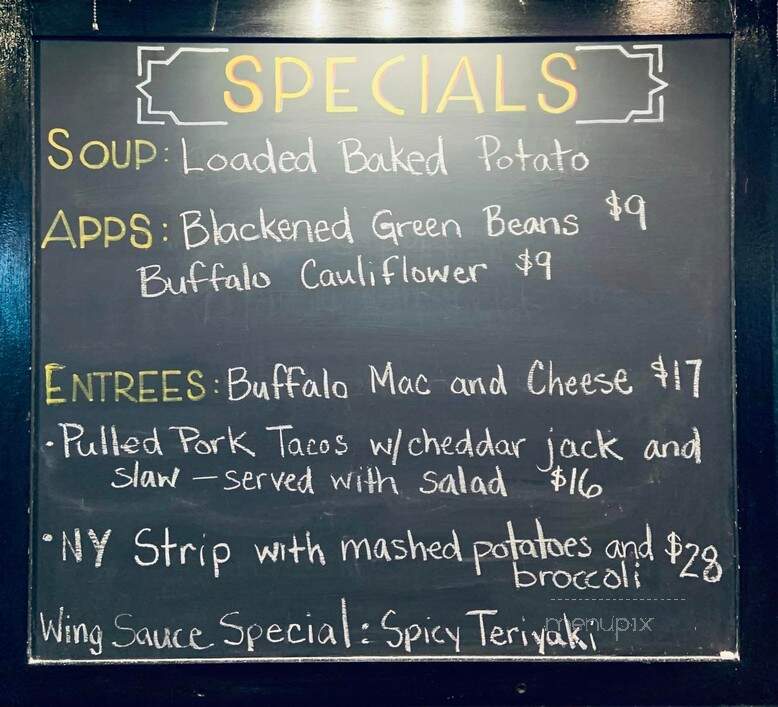 SPECIALS
SOUP: Loaded Baked Potato
APPS: Blackened Green Beans $9
Buffalo Cauliflower $9
ENTREES: Buffalo Mac and Cheese $17
·Pulled Pork Tacos w/cheddar jack and
slaw – served with salad $16
·NY Strip with mashed potatoes and $28
broccoli
Wing Sauce Special: Spicy Teriyaki
menupix